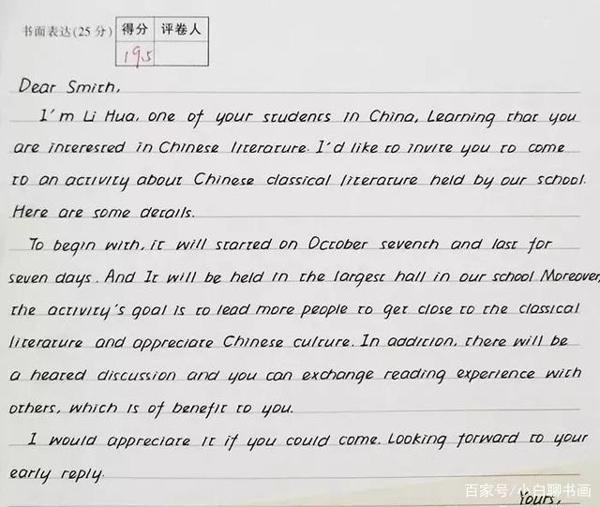 书面表达(25分) 得分 评卷人
19.5
Dear Smith,
I'm Li Hua, one of your students in China, Learning that you
are interested in Chinese literature. I'd like to invite you to come
to an activity about Chinese classical literature held by our school.
Here are some details.
To begin with, it will started on October seventh and last for
seven days. And It will be held in the largest hall in our school Moreover,
the activity's goal is to lead more people to get close to the classical
literature and appreciate Chinese culture. In addition, there will be
a heated discussion and you can exchange reading experience with
others, which is of benefit to you.
I would appreciate it if you could come. Looking forward to your
early reply.
Yours,
百家号/小白聊书画